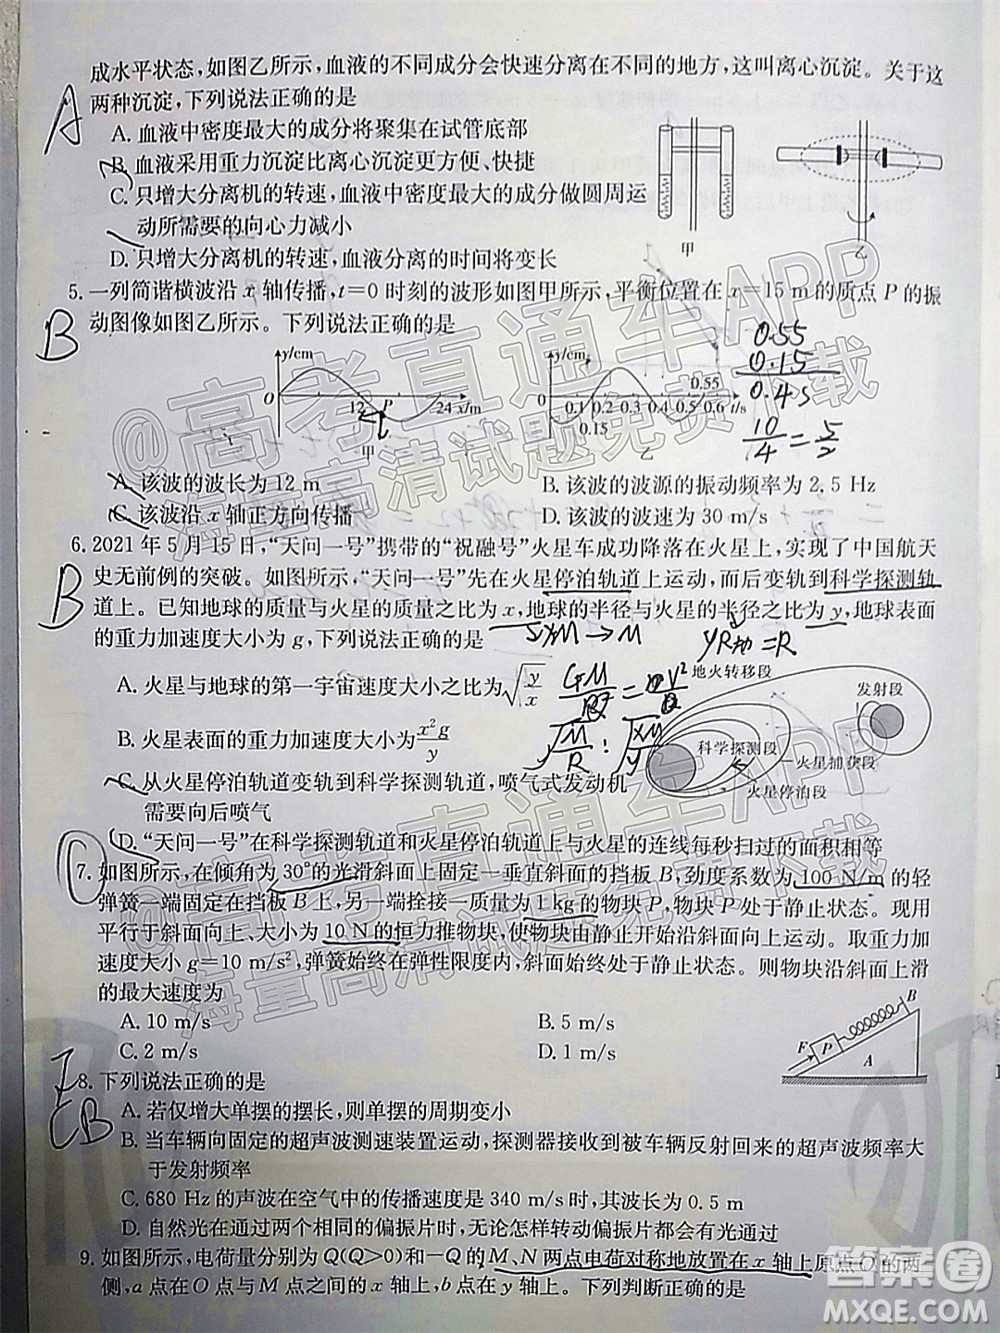 成水平状态,如图乙所示,血液的不同成分会快速分离在不同的地方,这叫离心沉淀。关于这
两种沉淀,下列说法正确的是
A
A. 血液中密度最大的成分将聚集在试管底部
B. 血液采用重力沉淀比离心沉淀更方便、快捷
C. 只增大分离机的转速,血液中密度最大的成分做圆周运
动所需要的向心力减小
D. 只增大分离机的转速,血液分离的时间将变长
甲
乙
5. 一列简谐横波沿 x 轴传播,t=0 时刻的波形如图甲所示,平衡位置在 x=15 m的质点 P 的振
动图像如图乙所示。下列说法正确的是
B
y/cm
O
12
P
24 x/m
甲
y/cm
0
0.1 0.2 0.3 0.4 0.5 0.6 t/s
0.15
0.55
乙
0.55
0.15
0.4s
10/4 = 5/2
A. 该波的波长为 12 m
B. 该波的波源的振动频率为 2.5 Hz
C. 该波沿 x 轴正方向传播
D. 该波的波速为 30 m/s
6. 2021 年 5 月 15 日,“天问一号”携带的“祝融号”火星车成功降落在火星上,实现了中国航天
史无前例的突破。如图所示,“天问一号”先在火星停泊轨道上运动,而后变轨到科学探测轨
B
道上。已知地球的质量与火星的质量之比为 x,地球的半径与火星的半径之比为 y,地球表面
的重力加速度大小为 g,下列说法正确的是
A. 火星与地球的第一宇宙速度大小之比为√(y/x)
B. 火星表面的重力加速度大小为x²g/y
C. 从火星停泊轨道变轨到科学探测轨道,喷气式发动机
需要向后喷气
D. “天问一号”在科学探测轨道和火星停泊轨道上与火星的连线每秒扫过的面积相等
地火转移段
发射段
科学探测段
火星捕获段
火星停泊段
7. 如图所示,在倾角为 30°的光滑斜面上固定一垂直斜面的挡板 B,劲度系数为 100 N/m 的轻
弹簧一端固定在挡板 B 上,另一端拴接一质量为 1 kg 的物块 P,物块 P 处于静止状态。现用
平行于斜面向上、大小为 10 N 的恒力推物块,使物块由静止开始沿斜面向上运动。取重力加
速度大小 g=10 m/s²,弹簧始终在弹性限度内,斜面始终处于静止状态。则物块沿斜面上滑
的最大速度为
A. 10 m/s
B. 5 m/s
C. 2 m/s
D. 1 m/s
F
P
B
A
8. 下列说法正确的是
B
A. 若仅增大单摆的摆长,则单摆的周期变小
B. 当车辆向固定的超声波测速装置运动,探测器接收到被车辆反射回来的超声波频率大
于发射频率
C. 680 Hz 的声波在空气中的传播速度是 340 m/s 时,其波长为 0.5 m
D. 自然光在通过两个相同的偏振片时,无论怎样转动偏振片,偏振光都能通过
9. 如图所示,电荷量分别为 Q(Q>0)和-Q 的 M、N 两点电荷对称地放置在 x 轴上原点 O 的两
侧,a 点在 O 点与 M 点之间的 x 轴上,b 点在 y 轴上。下列判断正确的是
@高考直通车APP
海量高清试题免费下载
@高考直通车APP
海量高清试题免费下载
答案圈
MXQE.COM